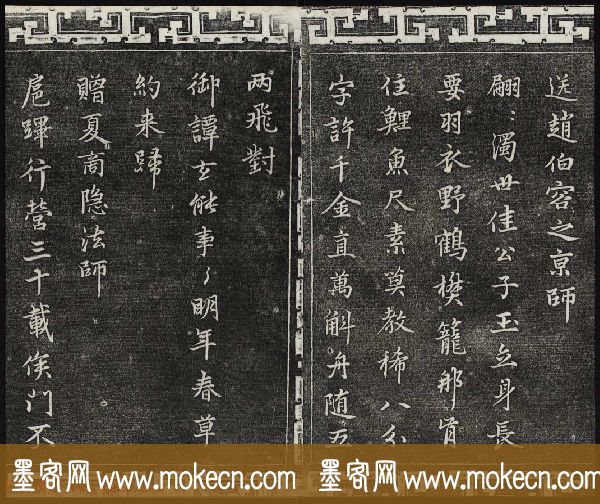 送趙伯容之京師
翩〻濁世佳公子玉立身長
要羽衣野鶴樊籠那肯
住鯉魚尺素莫教稀八分
字許千金直萬斛舟隨五
兩飛對
御譚玄能事了明年春草
約来歸
贈夏商隱法師
扈蹕行營三十載侯門不
墨客网 www.mokecn.com 墨客网 www.mokecn.com